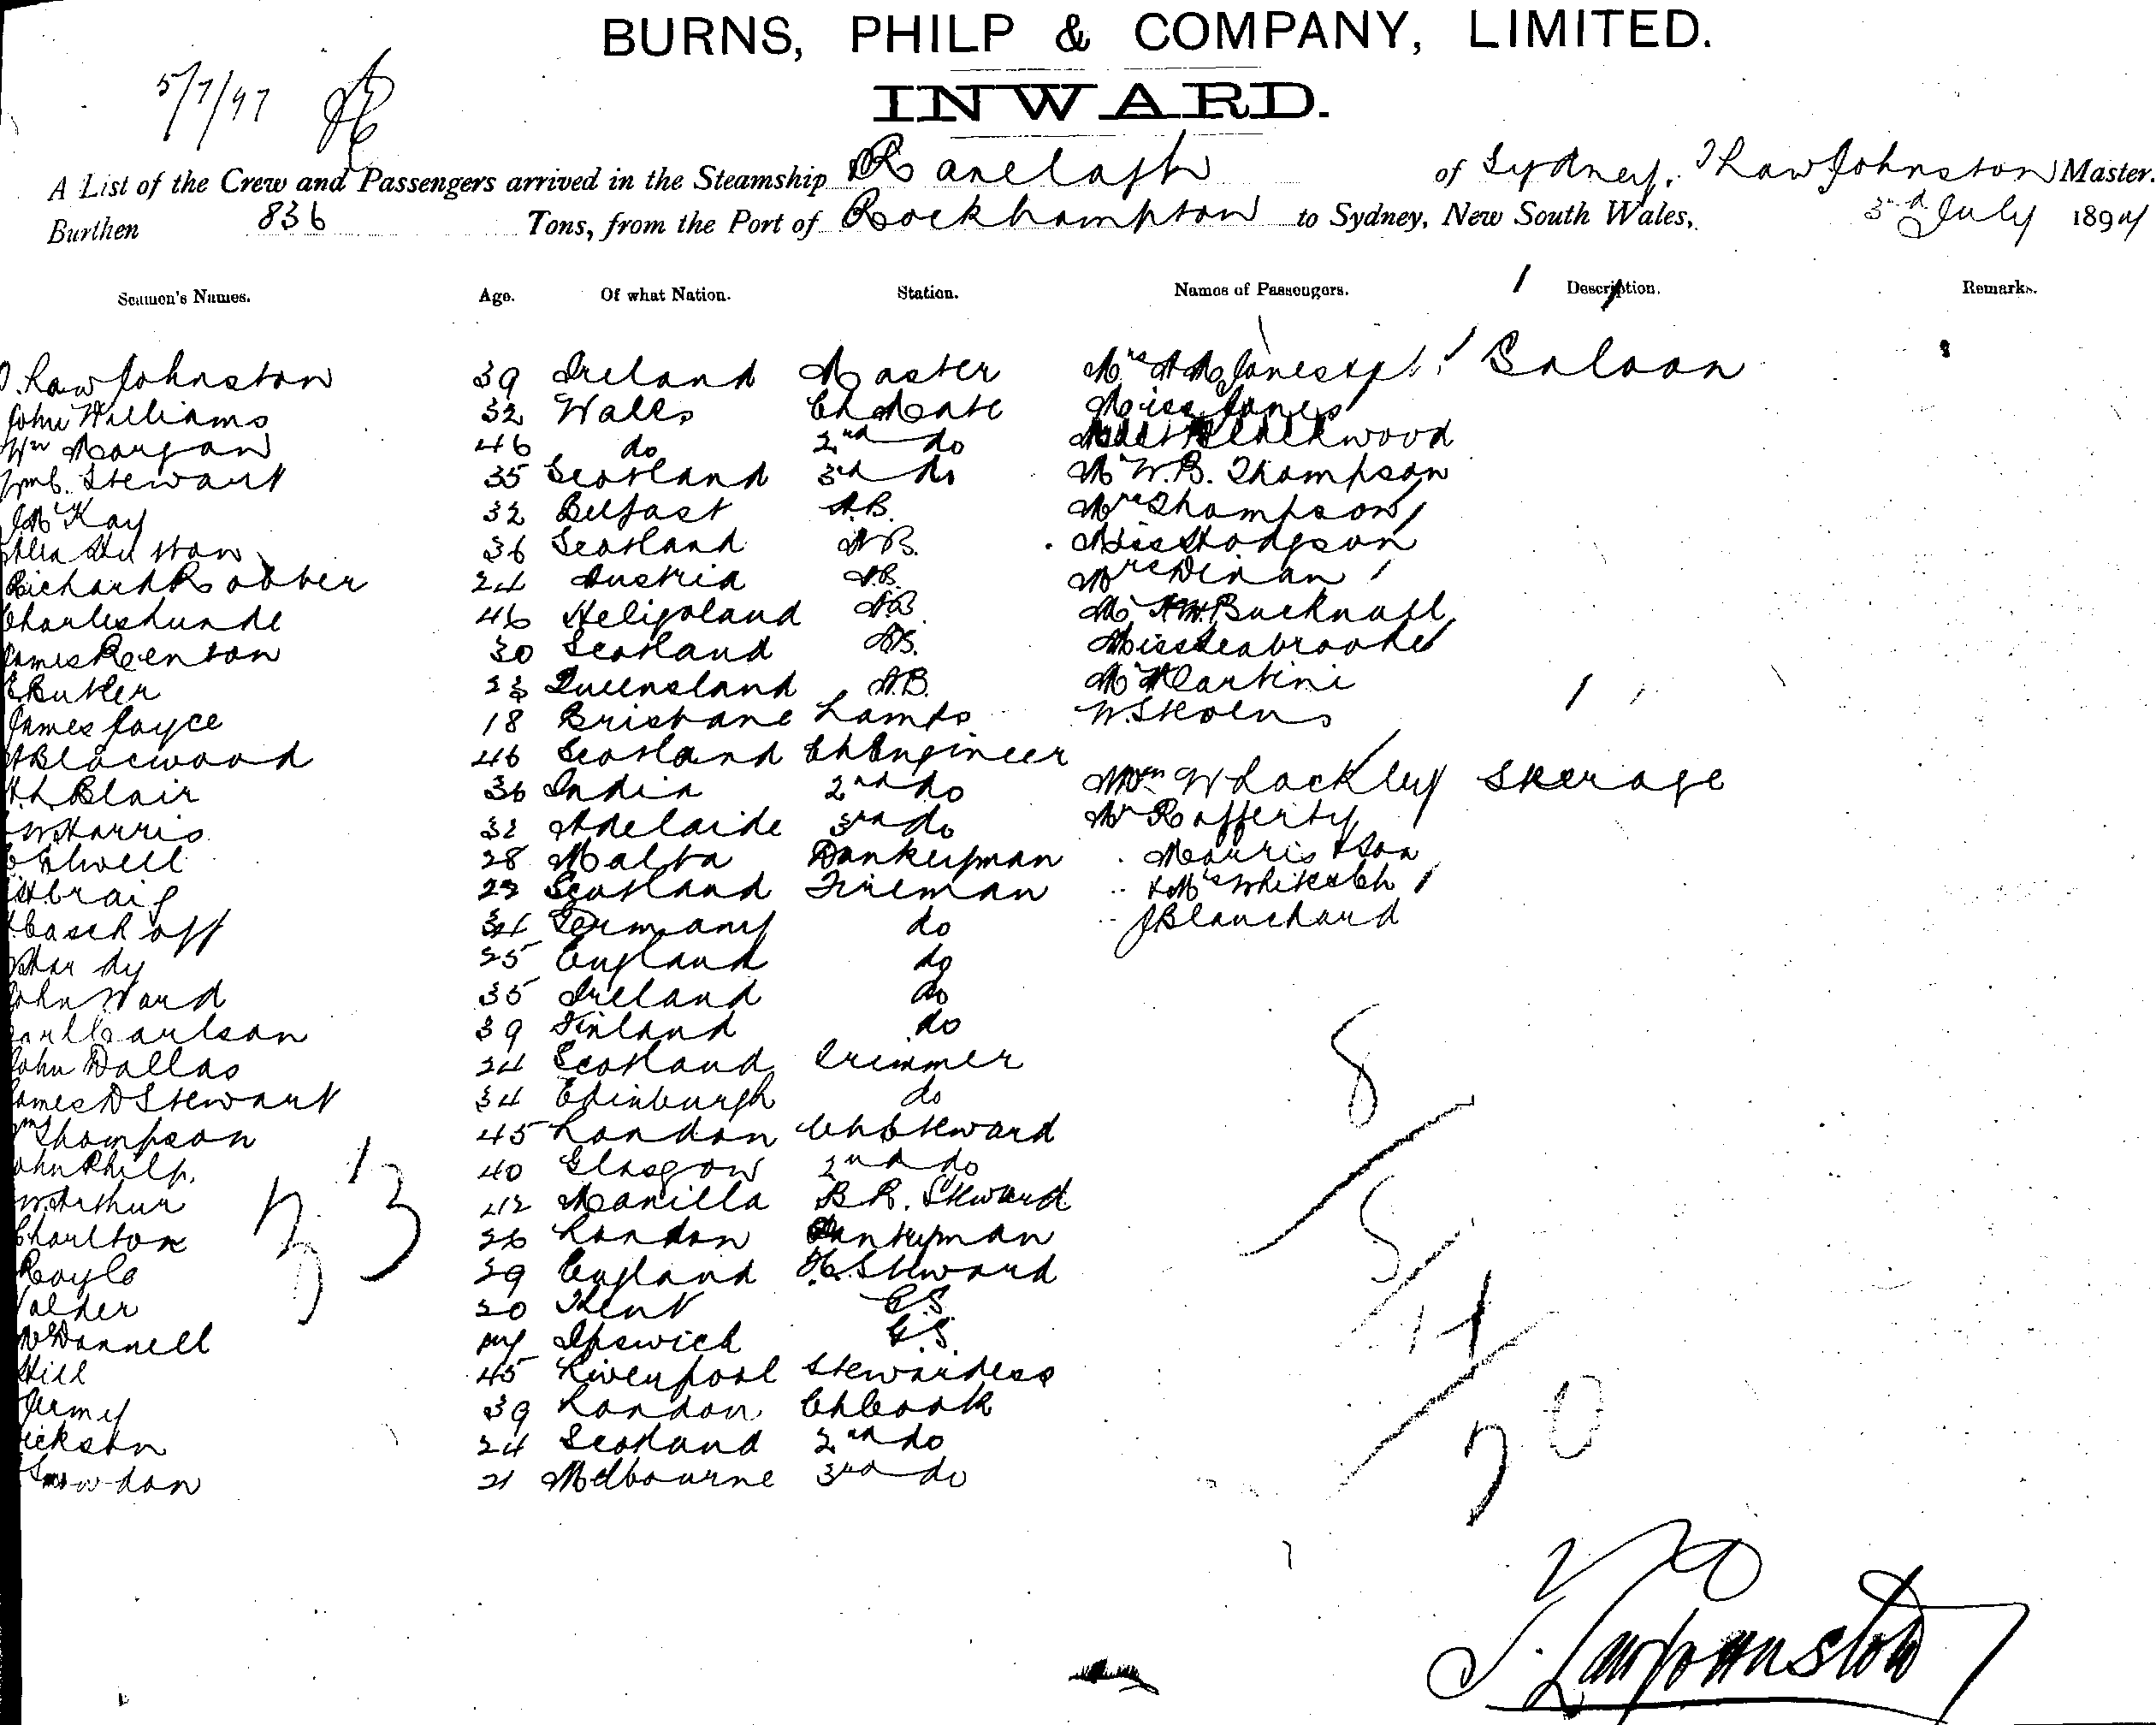 BURNS, PHILP & COMPANY, LIMITED.
INWARD.
5/7/97
A List of the Crew and Passengers arrived in the Steamship Ranelagh of Sydney, T Law Johnston Master.
Burthen 836 Tons, from the Port of Rockhampton to Sydney, New South Wales, 5th July 1897
Seamen's Names. Age. Of what Nation. Station. Names of Passengers. Description. Remarks.
T. Law Johnston 39 Ireland Master Saloon
John Williams 32 Wales Ch Mate Miss Jones
Wm Morgan 46 do 2nd do Blackwood
Stewart 35 Scotland 3rd do Mr W.B. Thompson
McKay 32 Belfast A.B. Mrs Thompson
36 Scotland A.B. Miss Hodgson
Richard 24 Austria A.B. Mrs Dinan
Charles Lunde 46 Heligoland A.B. Bucknall
James Renton 30 Scotland A.B. Miss Seabrooke
E Butler 23 Queensland A.B. Martini
James Joyce 18 Brisbane Lamps W. Stevens
A Blacwood 46 Scotland Ch Engineer
Blair 36 India 2nd do W Lackley Sterage
W Harris 32 Adelaide 3rd do Mr Rafferty
Elwell 28 Malta Donkeyman Morris & Son
Craig 29 Scotland Fireman
34 Germany do J Blanchard
Hardy 25 England do
John Ward 35 Ireland do
Carl Carlson 39 Finland do
John Dallas 24 Scotland Trimmer
James D Stewart 34 Edinburgh do
Wm Thompson 45 London Ch Steward
John Philp. 40 Glasgow 2nd do
W. Arthur 42 Manilla B.R. Steward
Charlton 26 London Pantryman
Royle 29 England Steward
Valder 20 Kent G.S.
McDonnell Ipswich G.S.
Hill 45 Liverpool Stewardess
Jermy 39 London Ch Cook
24 Scotland 2nd do
21 Melbourne 3rd do
33
8
5
T. Law Johnston